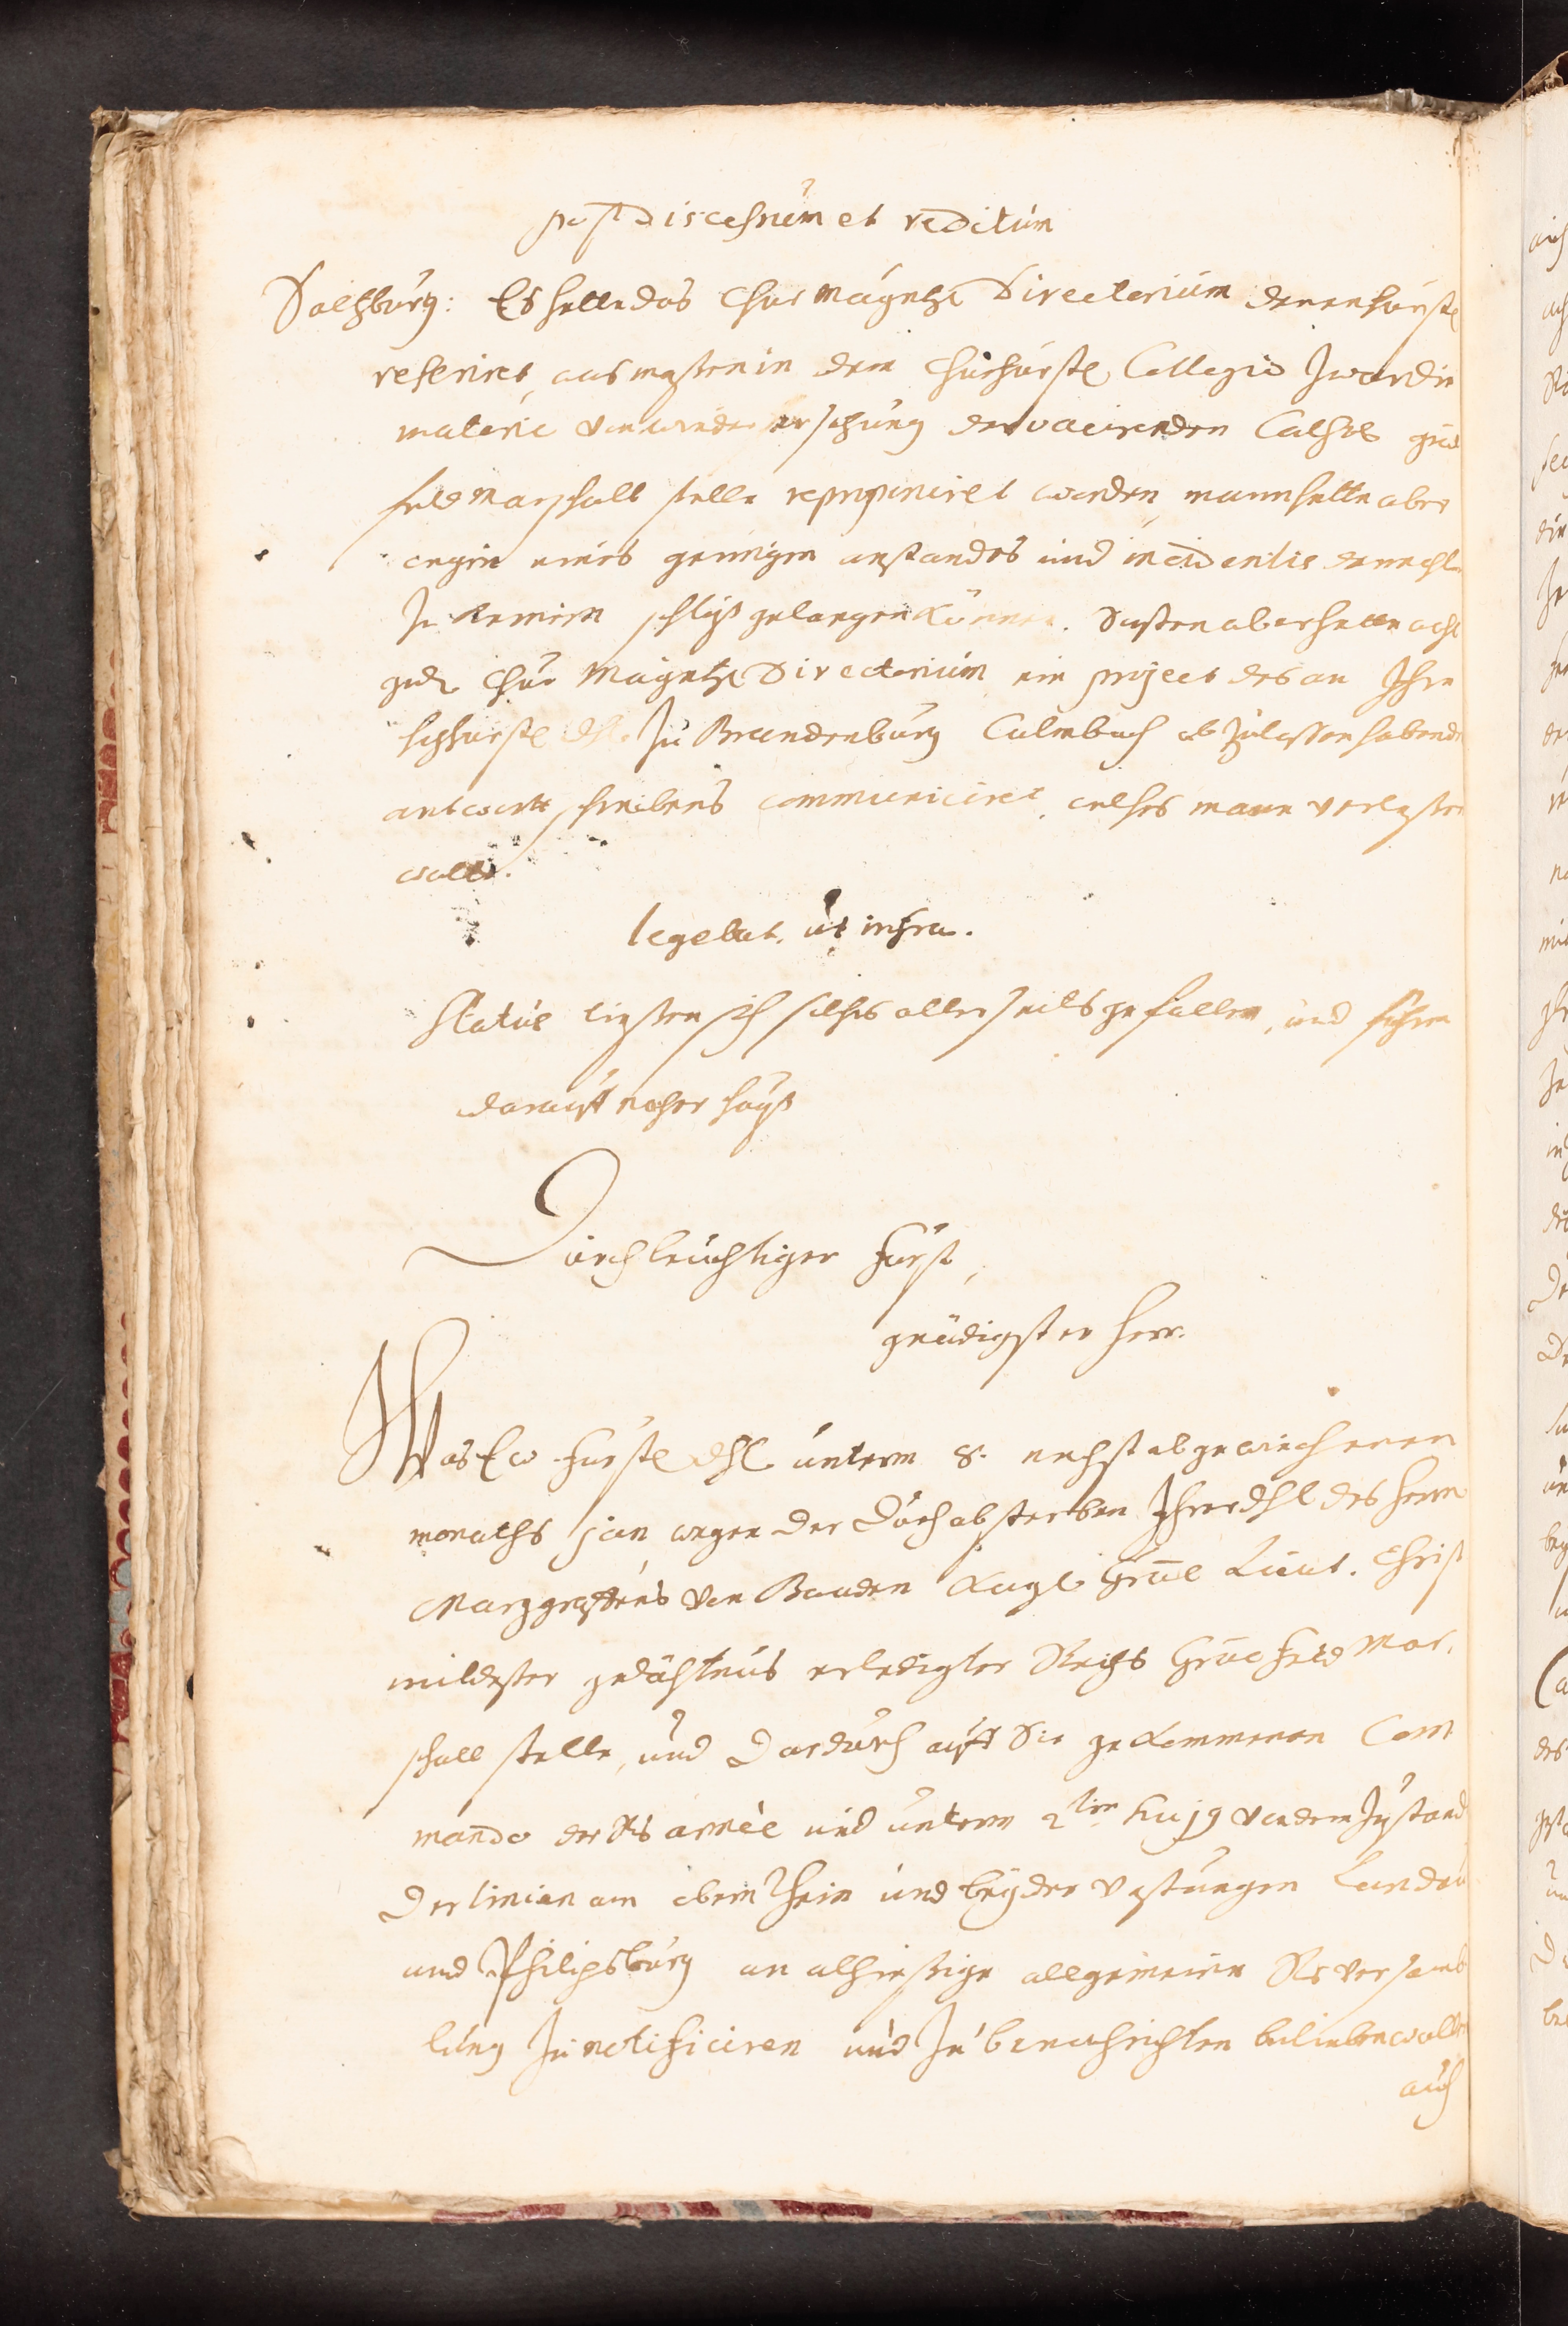 post discessum et reditum
Saltzburg: Es hette das Chur Mayntz. Directorium denen fürstl
referiret, was massen in dem Churfürstl Collegio zwar die
materie von wieder ersetzung der vacirenden Cathol gral
feldmarschall stelle reproponiret worden, mann hette aber
wegen eines geringen anstandes und incidentis dennoch
zu keinem schluß gelangen können. Sonsten aber hette
gedl Chur Mayntz Directorium ein project des an Ihre
hochfürstl dhl. zu Brandenburg Culmbach abzulassen habende
antwortt schreibens communiciret, welches mann verlesen
wolle.
legebat. ut infra.
Status liessen sich solches allerseits gefallen, und fuhren
darauff nacher hauß
Durchleuchtiger Fürst,
gnädigster Herr.
Was Ew fürstl dhl unterm 8. nechst abgewiechenen
monaths jan wegen der durch absterben Ihrer dhl des herrn
Marggraffens von Baaden Kayl Gral Lieut. Christ
mildester gedächtnus erledigter Reichs Gral Feld Mar,
schall stelle, und dardurch auff Sie gekommenen Com
mando der Rs armée und unterm 2ten hujg von dem zustand
der linien am obern Rhein und beyder vestungen Landau
und Philipsburg an alhiessige allgemeine Rs versamb
lung zu notificiren und zu benachrichten belieben wollen
auch